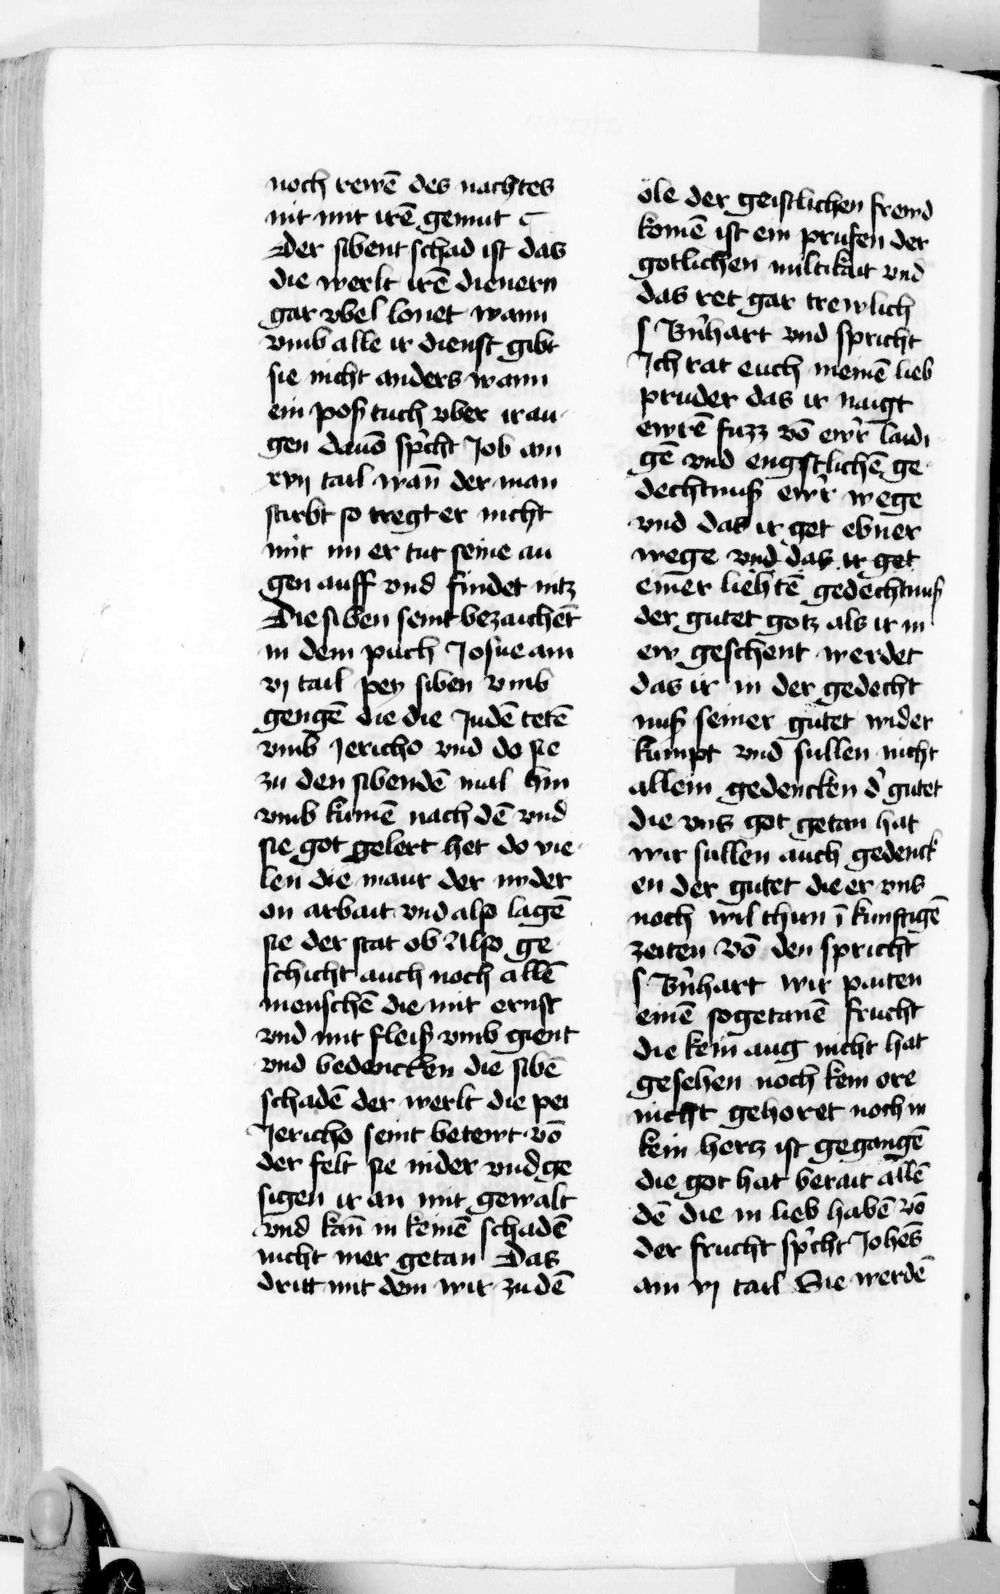 noch rewē des nachtes
nit mit irē gemut
Der sibent schad ist das
die werlt irē dienern
gar vbel lonet wann
vmb alle ir dienst gibt
sie nicht anders wann
ein poß tuch vber ir au
gen dauō sp̄cht Job am
xvij tail wan̄ der man
stirbt so tregt er nicht
mit im er tut seine au
gen auff vnd findet nitz
Die siben seint bezaichēt
in dem puch Josue am
vj tail pey siben vmb
gengē die die Judē tetē
vmb Jericho vnd do sie
zu den sibendē mal hin
vmb kumē nach dē vnd
sie got gelert het do vie
len die maur der nyder
on arbait vnd also lagē
sie der stat ob Also ge
schicht auch noch allē
menschē die mit ernst
vnd mit fleiß vmb gient
vnd bedencken die sibē
schadē der werlt die pei
Jericho seint betewt vō
der felt sie nider vnd ge
sigen ir an mit gewalt
vnd kan̄ in keinē schadē
nicht mer getan Das
dritt mit dem wir zu dē
öle der geistlichen frewd
komē ist ein prufen der
gotlichen miltikait vnd
das ret gar trewlich
s Bn̄hart vnd spricht
Ich rat euch meinē lieb
pruder das ir naigt
ewrē fuzz vō ewr̄ laidi
gē vnd engstlichē ge
dechtnuß ewr̄ wege
vnd das ir get ebner
wege vnd das ir get
einer liehtē gedechtnuß
der gutet gotz als ir in
ew geschent werdet
das ir in der gedecht
nuß seiner gutet wider
kumpt vnd sullen nicht
allein gedencken d̄ gutet
die vns got getan hat
wir sullen auch gedenck
en der gutet die er vns
noch wil thun ī kunftigē
zeiten vō den spricht
s Bn̄hart wir paiten
einē sogetanē frucht
die kein aug nicht hat
gesehen noch kein ore
nicht gehoret noch in
kein hertz ist gegangē
die got hat berait allē
dē die in lieb habē vō
der frucht sp̄cht Johēs
am vj tail Sie werdē